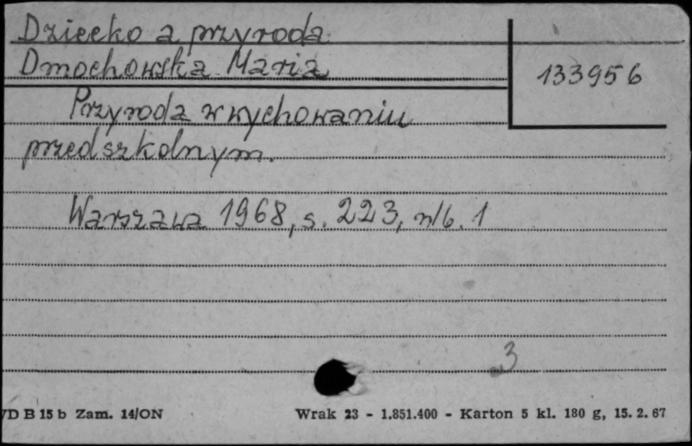 Dziecko a przyroda
Dmochowska Maria
133956
Przyroda w wychowaniu
przedszkolnym.
Warszawa 1968, s. 223, nlb. 1
3
D B 15 b Zam. 14/ON
Wrak 23 - 1.851.400 - Karton 5 kl. 180 g, 15. 2. 67